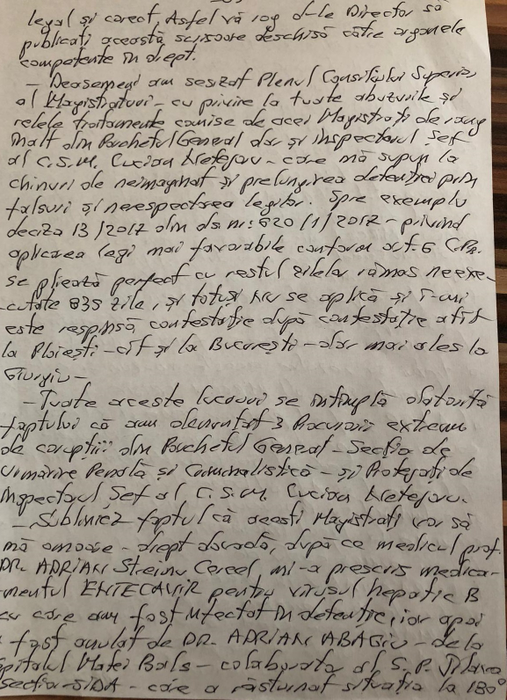 legal și corect, Asfel vă rog d-le Director să
publicați această scrisoare deschisă către organele
competente în drept.
– Deasemeni am sesizat Plenul Consiliului Superior
al Magistraturi – cu privire la toate abuzurile și
relele tratamente comise de acei Magistrați de rang
înalt din Parchetul General dar și Inspectorul Șef
al C.S.M. Lucian Netejoru – care mă supun la
chinuri de neimaginat și prelungirea detenției prin
falsuri și nerespectarea legilor. Spre exemplu
decizia 13/2017 din ds nr: 620/1/2017 – privind
aplicarea legi mai favorabile conform art. 6 C.P.
se pliează perfect cu restul zilelor rămas neexe-
cutate 835 zile, și totuși nu se aplică și î-mi
este respinsă contestație după contestație atît
la Ploiești – cît și la București – dar mai ales la
Giurgiu –
– Toate aceste lucruri se întîmplă datorită
faptului că am denunțat 3 Procurori extrem
de corupții din Parchetul General – Secția de
Urmărire Penală și Criminalistică – și Protejați de
Inspectorul Șef al C.S.M. Lucian Netejoru.
– Subliniez faptul că acești Magistrați vor să
mă omoare – drept dovadă, după ce medicul prof.
DR. ADRIAN Streinu Cercel mi-a prescris medica-
mentul ENTECAVIR pentru virusul hepatic B
cu care am fost infectat în detenție, iar apoi
fost anulat de DR. ADRIAN ABAGIU – de la
spitalul Matei Bals – colaborator al S.P. Jilava
secția SIDA – care a răsturnat situația la 180°